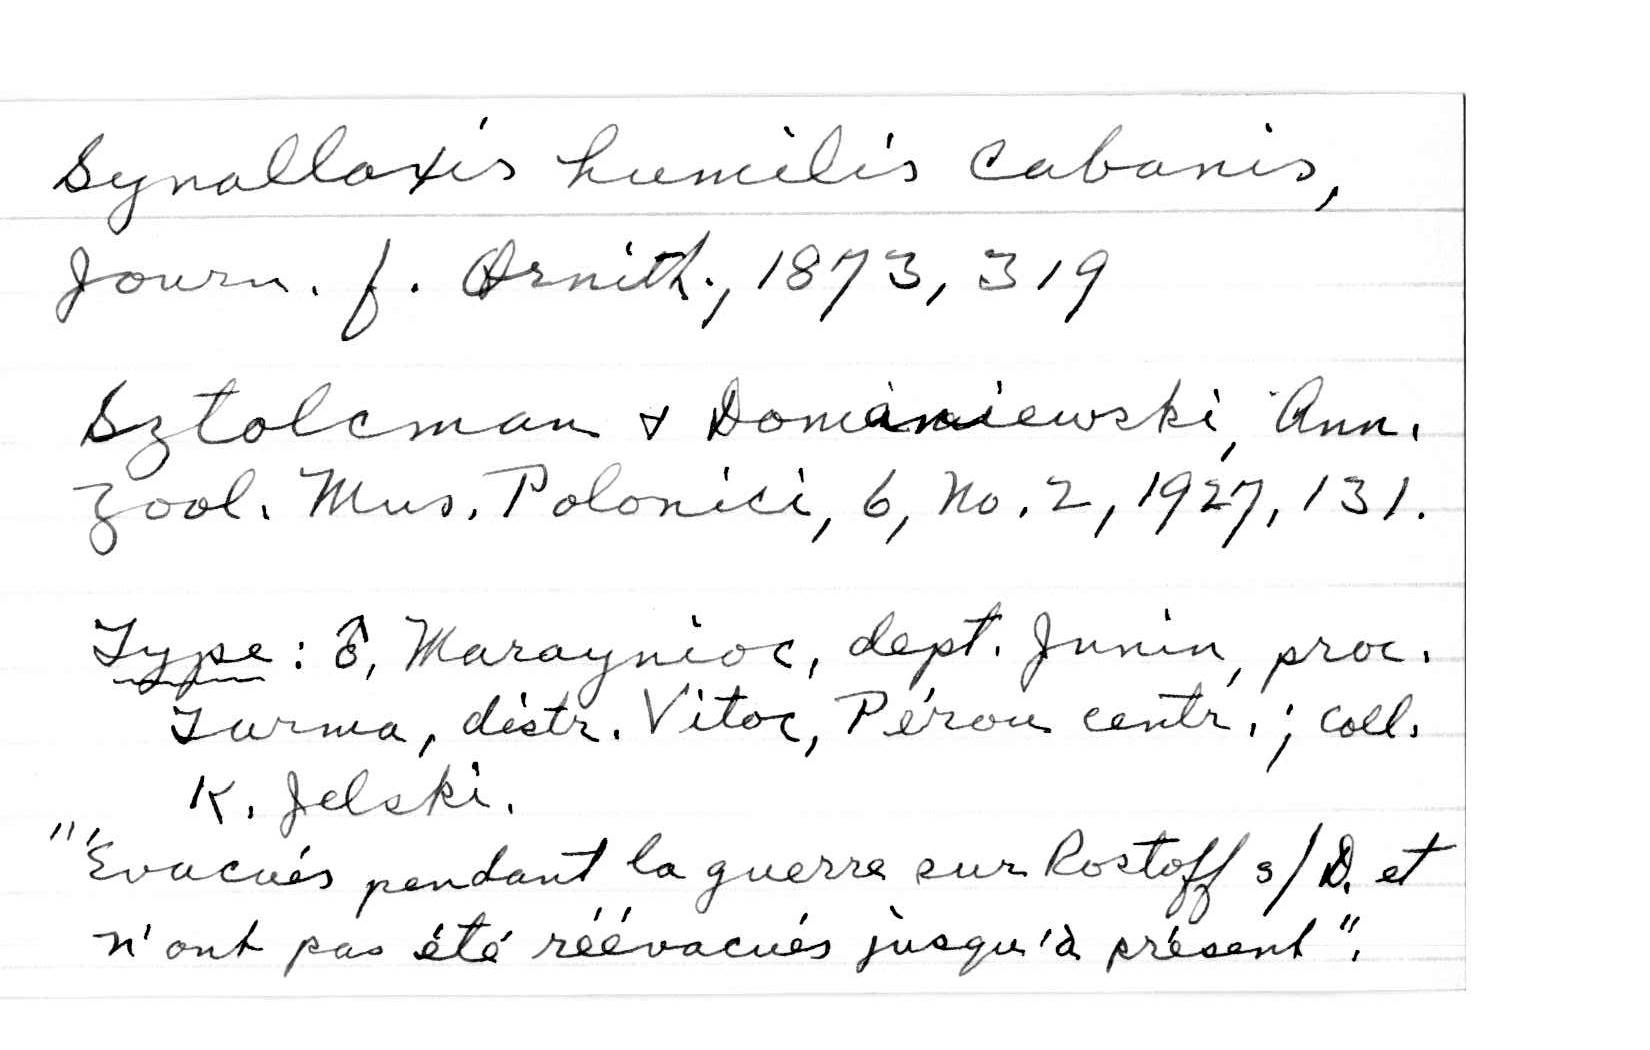 Synallaxis humilis Cabanis,
Journ. f. Ornith., 1873, 319
Sztolcman & Domaniewski, Ann.
Zool. Mus. Polonici, 6, No. 2, 1927, 131.
Type: ♂, Maraynioc, dept. Junin, proc.
Tarma, distr. Vitoc, Pérou centr.; coll.
K. Jelski.
"Évacués pendant la guerre sur Rostoff s/D. et
n'ont pas été réévacués jusqu'à présent".